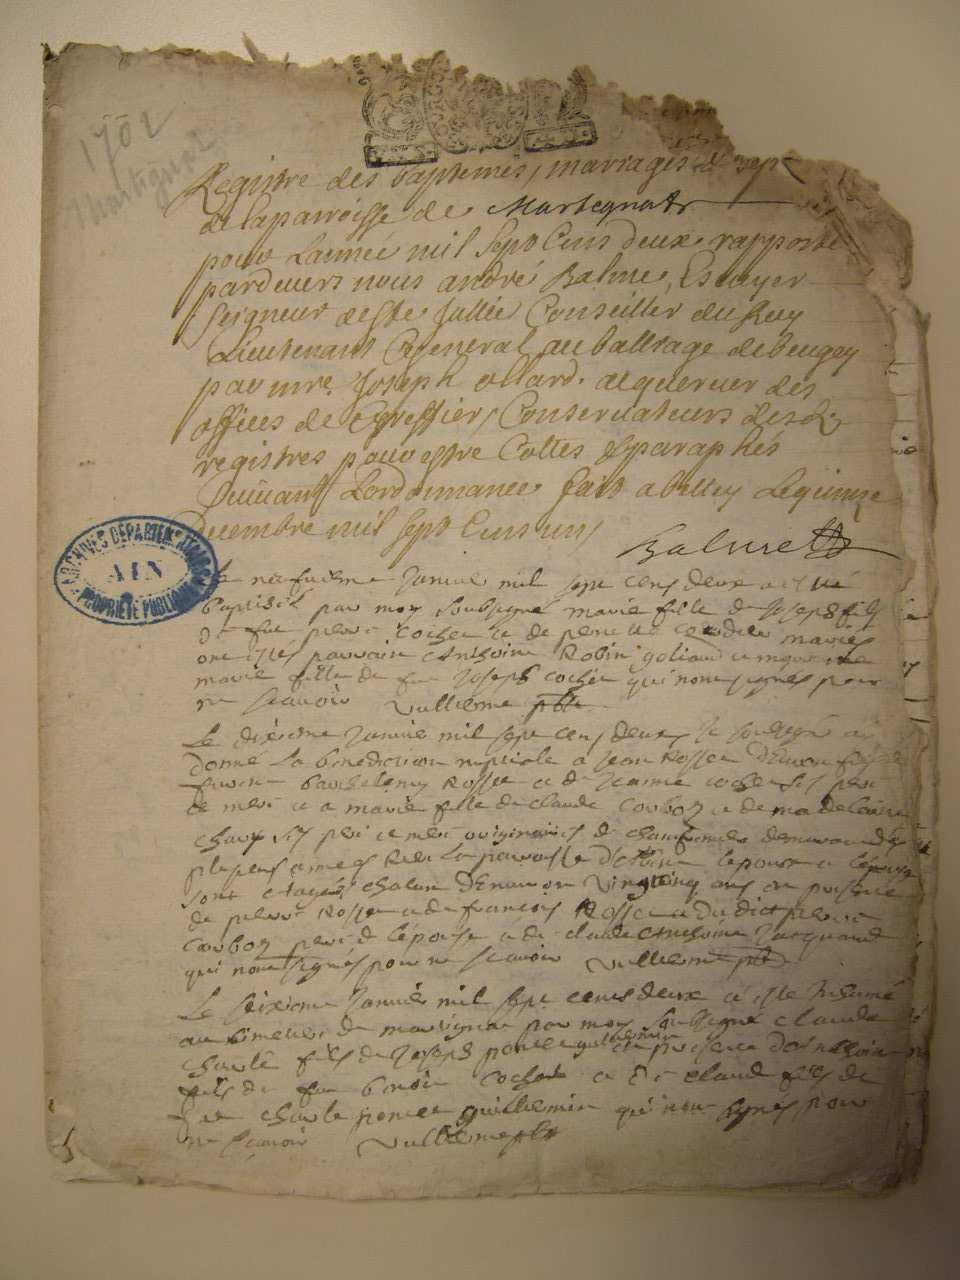 1702
Martignat
Registre des baptemes, mariages et sept
de la parroisse de Martegnat
pour Lannée mil sept Cens deux rapporté
pardevers nous andré Balme, Escuyer
Seigneur de Ste Jullie Conseiller du Roy
Lieutenant General au balliage de beugey
par mre. Joseph allard. acquereur des
offices de Greffier, Conservateurs desd.
registres pour estre Cottes & paraphés
Suivant Lordonnance fait a belley Le quinze
decembre mil sept Cens un,
Balme
ARCHIVES DÉPARTEMENTALES
AIN
PROPRIÉTÉ PUBLIQUE
Le neufuieme Janvie mil sept cens deux a esté
baptisée par moy soubsigné marie fille de Joseph fils
de feu pierre cochet et de pernette maries
ont estes parrain Anthoine Robin goliard et
marie fille de feu Joseph cochet qui nont signés pour
ne scavoir vuilleme ptre
Le dixieme Janvie mil sept cens deux Je soubsigné ay
donné La benediction nuptiale a Jean Rosset
barthelemy Rosset et de Jeanne cochet ses pere
et mere et a marie fille de claude corboz et de madelaine
ses pere et mere originaires de
plusieurs annees Riere La parroisse L'epoux et L'épouse
sont eages chacun d'environ vingt cinq ans en presence
de pierre Rosset et de francois Rosset et dudict
corboz pere de L'épouse et de claude Anthoine Jacquand
qui nont signés pour ne scavoir vuilleme ptre
Le seixieme Janvie mil sept cens deux a esté Inhumé
au simetier de martignat par moy soubsigné claude
charle fils de Joseph poncet guillermin en presence d'Anthoine
fils de feu benoit cochet et de claude fils de
feu charle poncet guillermin qui nont signés pour
ne scavoir vuilleme ptre